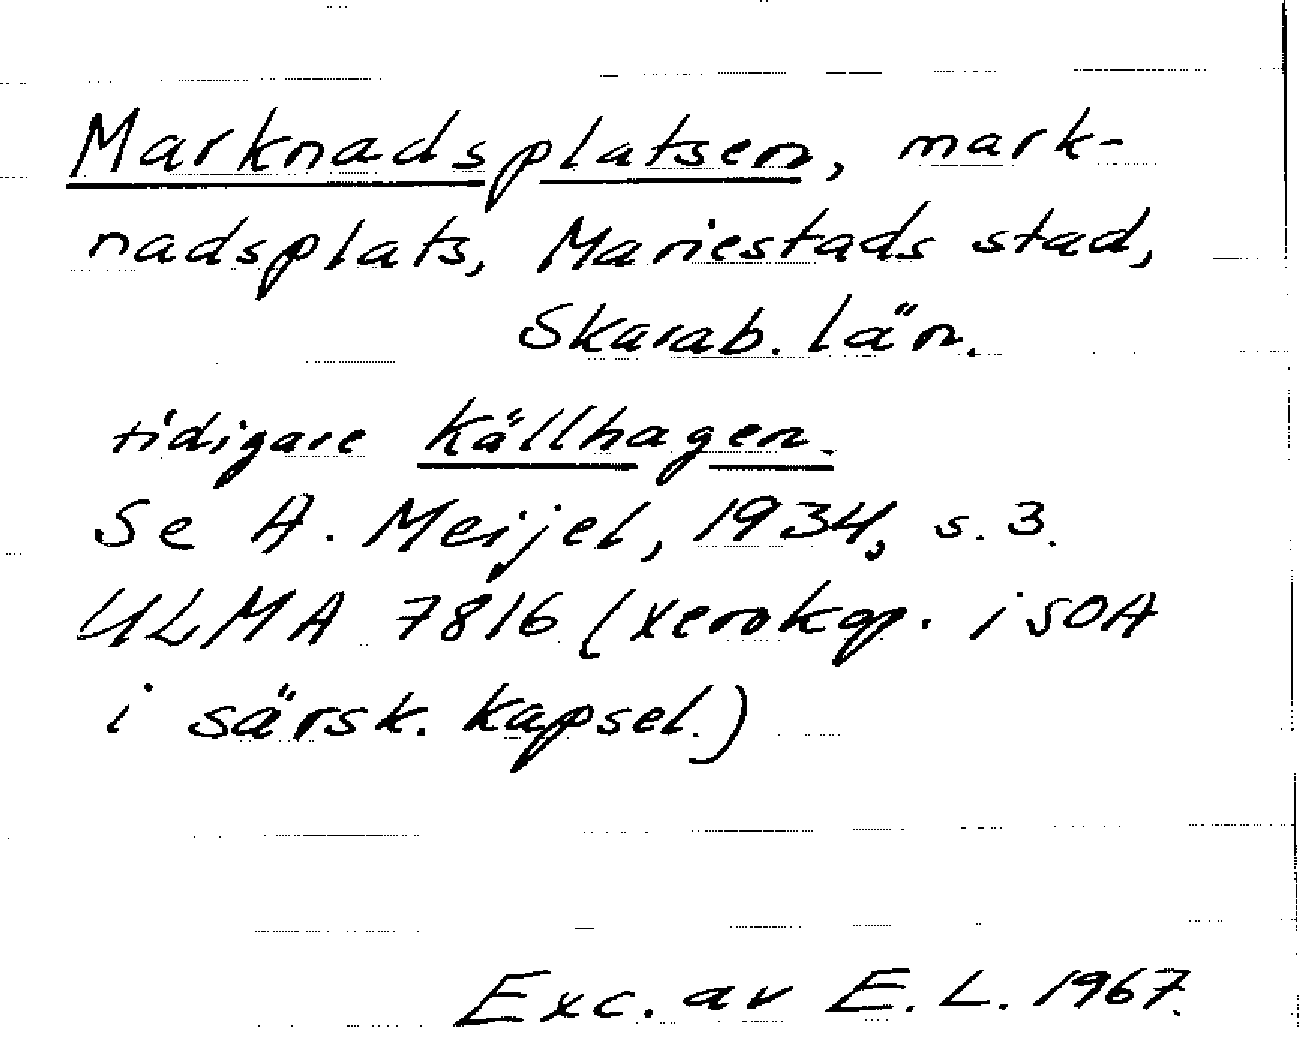 Marknadsplatsen, mark-
nadsplats, Mariestads stad,
Skarab. län.
tidigare Källhagen.
Se A. Meijel, 1934, s. 3.
ULMA 7816 (xerokop. i SOA
i särsk. kapsel.)
Exc. av E. L. 1967.